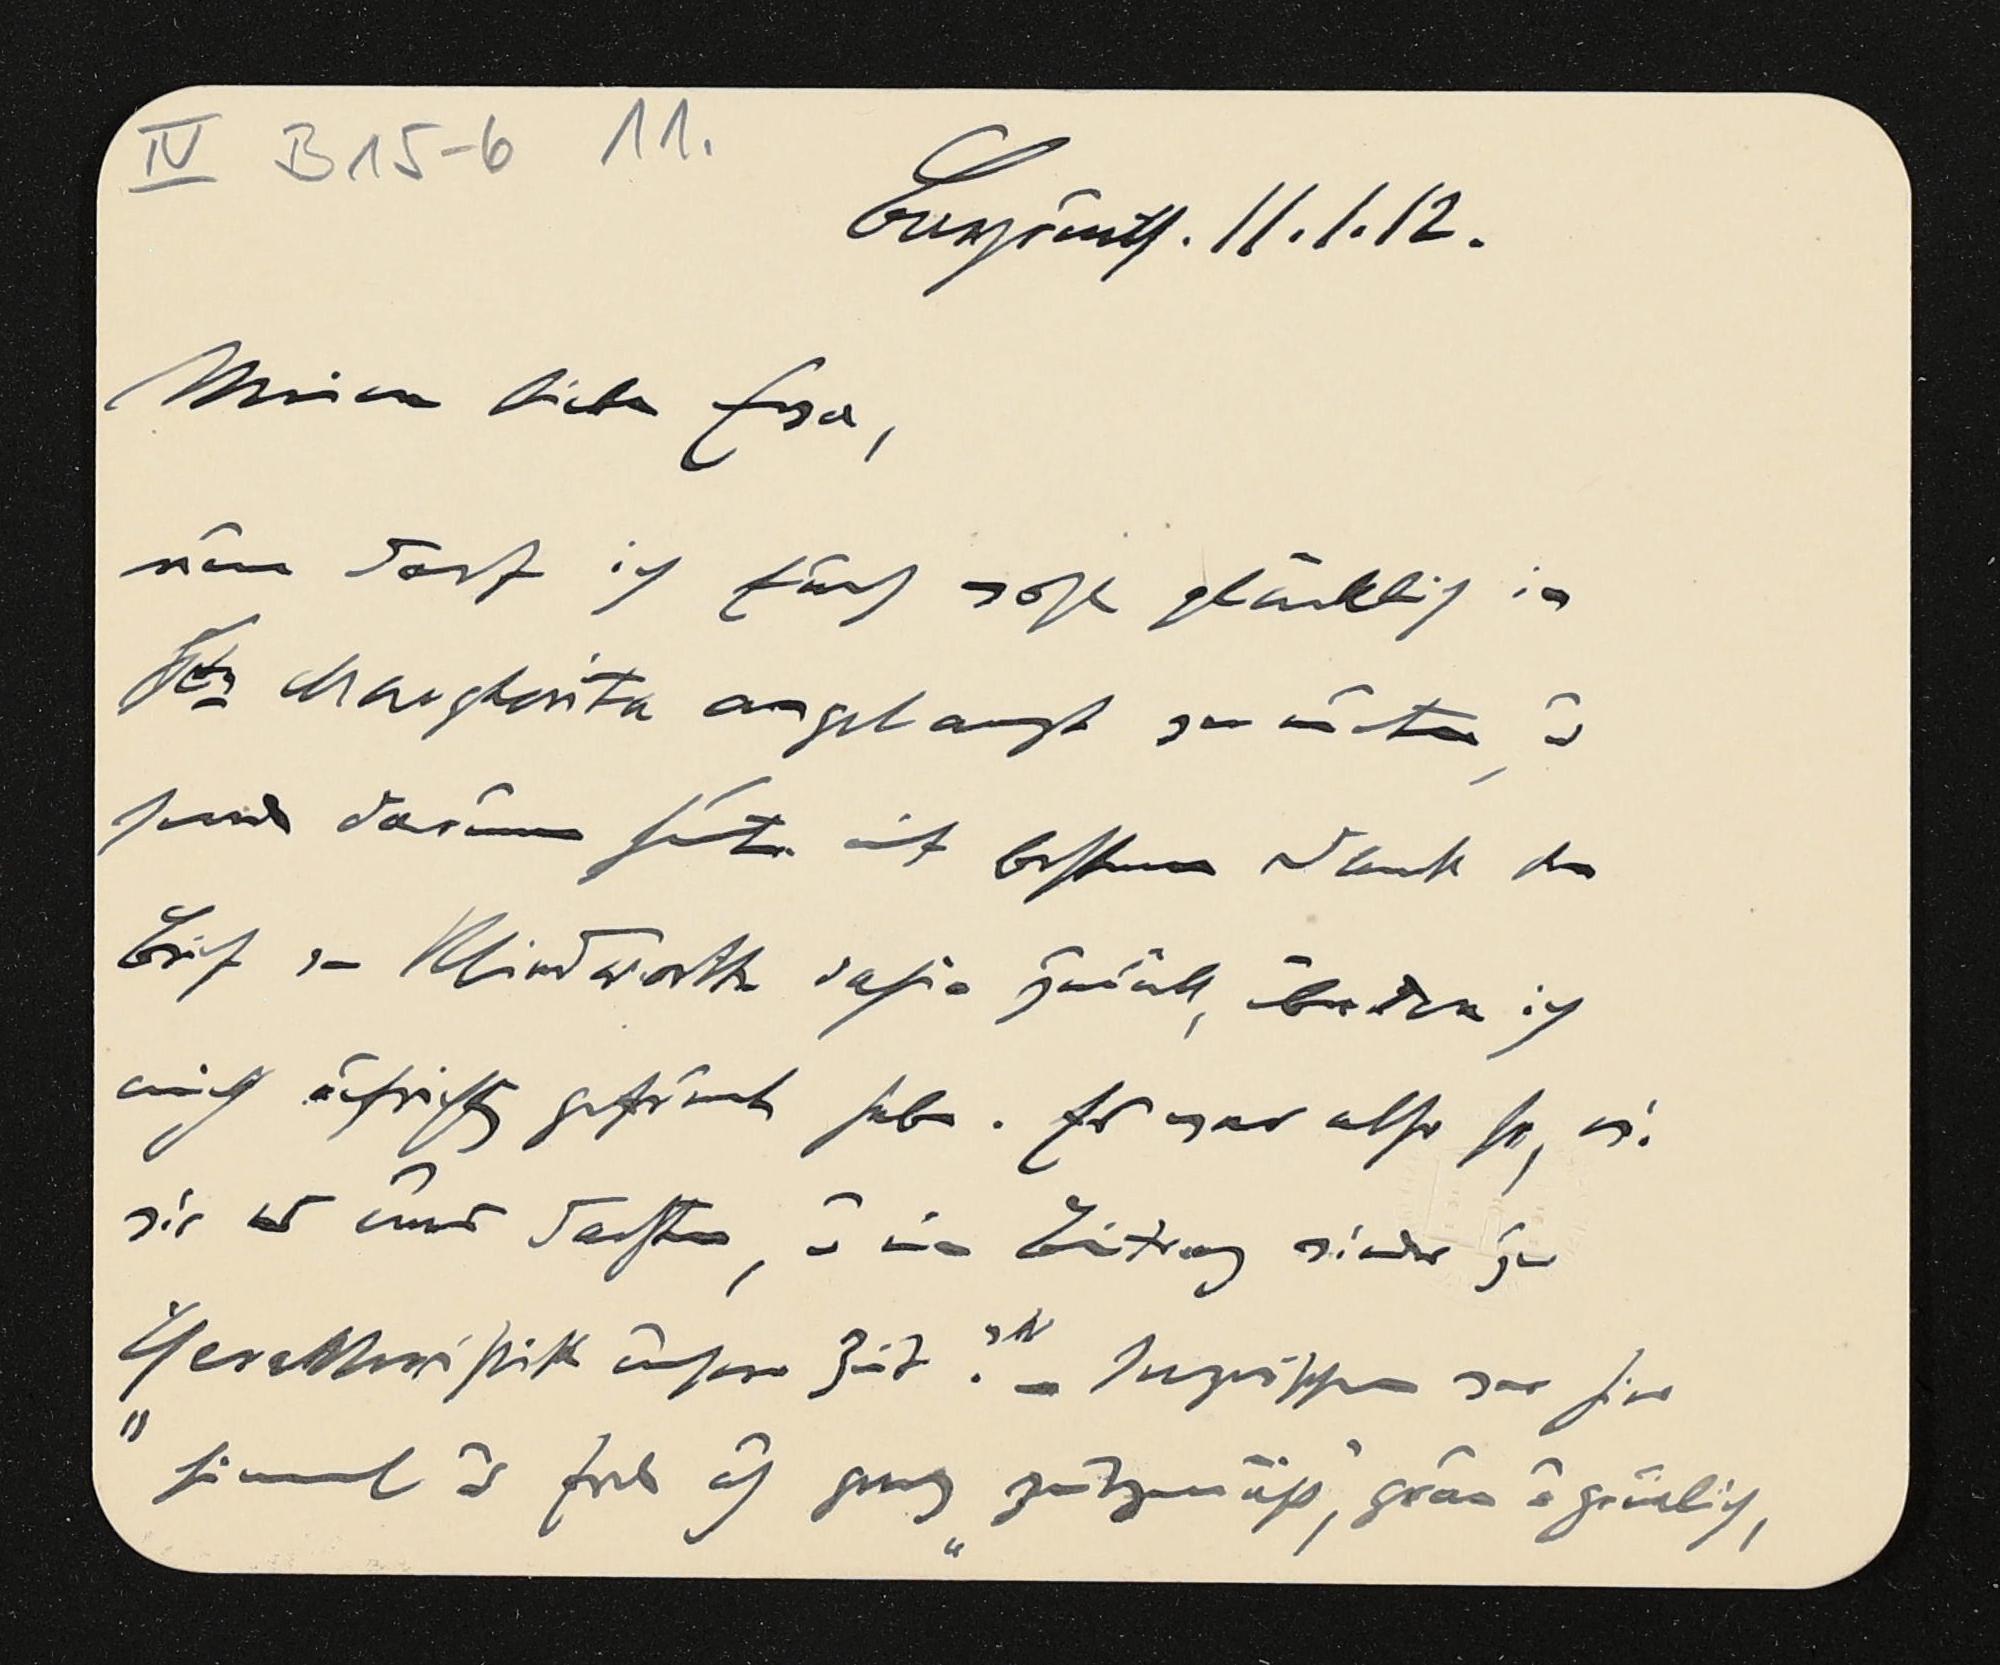 IV B15-6 11.
Bayreuth. 11.1.12.
Meine liebe Eva,
nun darf ich Euch wohl glücklich in
Sta Margherita angelangt vermuten, u
sende darum heute mit bestem Dank den
Brief von Klindworth dahin zurück, über den ich
mich aufrichtig gefreut habe. Es war also so, wie
wir es uns dachten, u ein Beitrag wieder zur
Charakteristik unserer Zeit! – Inzwischen war hier
Himmel u. Erde auch ganz „zeitgemäß", grau u greulich,